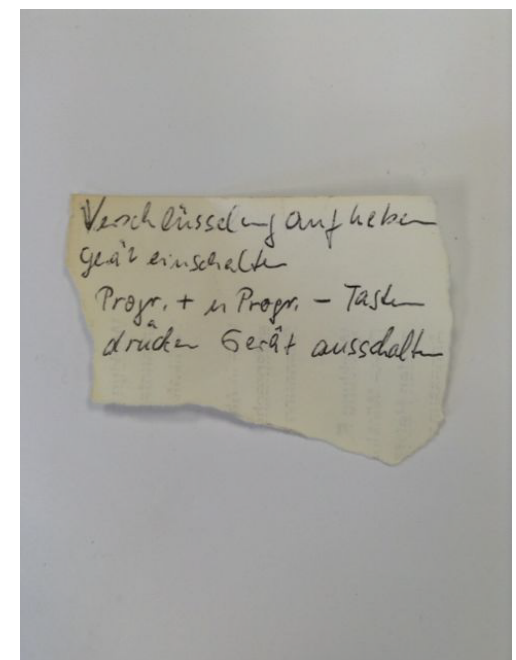 Verschlüsselung aufheben
gerät einschalten
Progr. + u Progr. - Tasten
drücken Gerät ausschalten